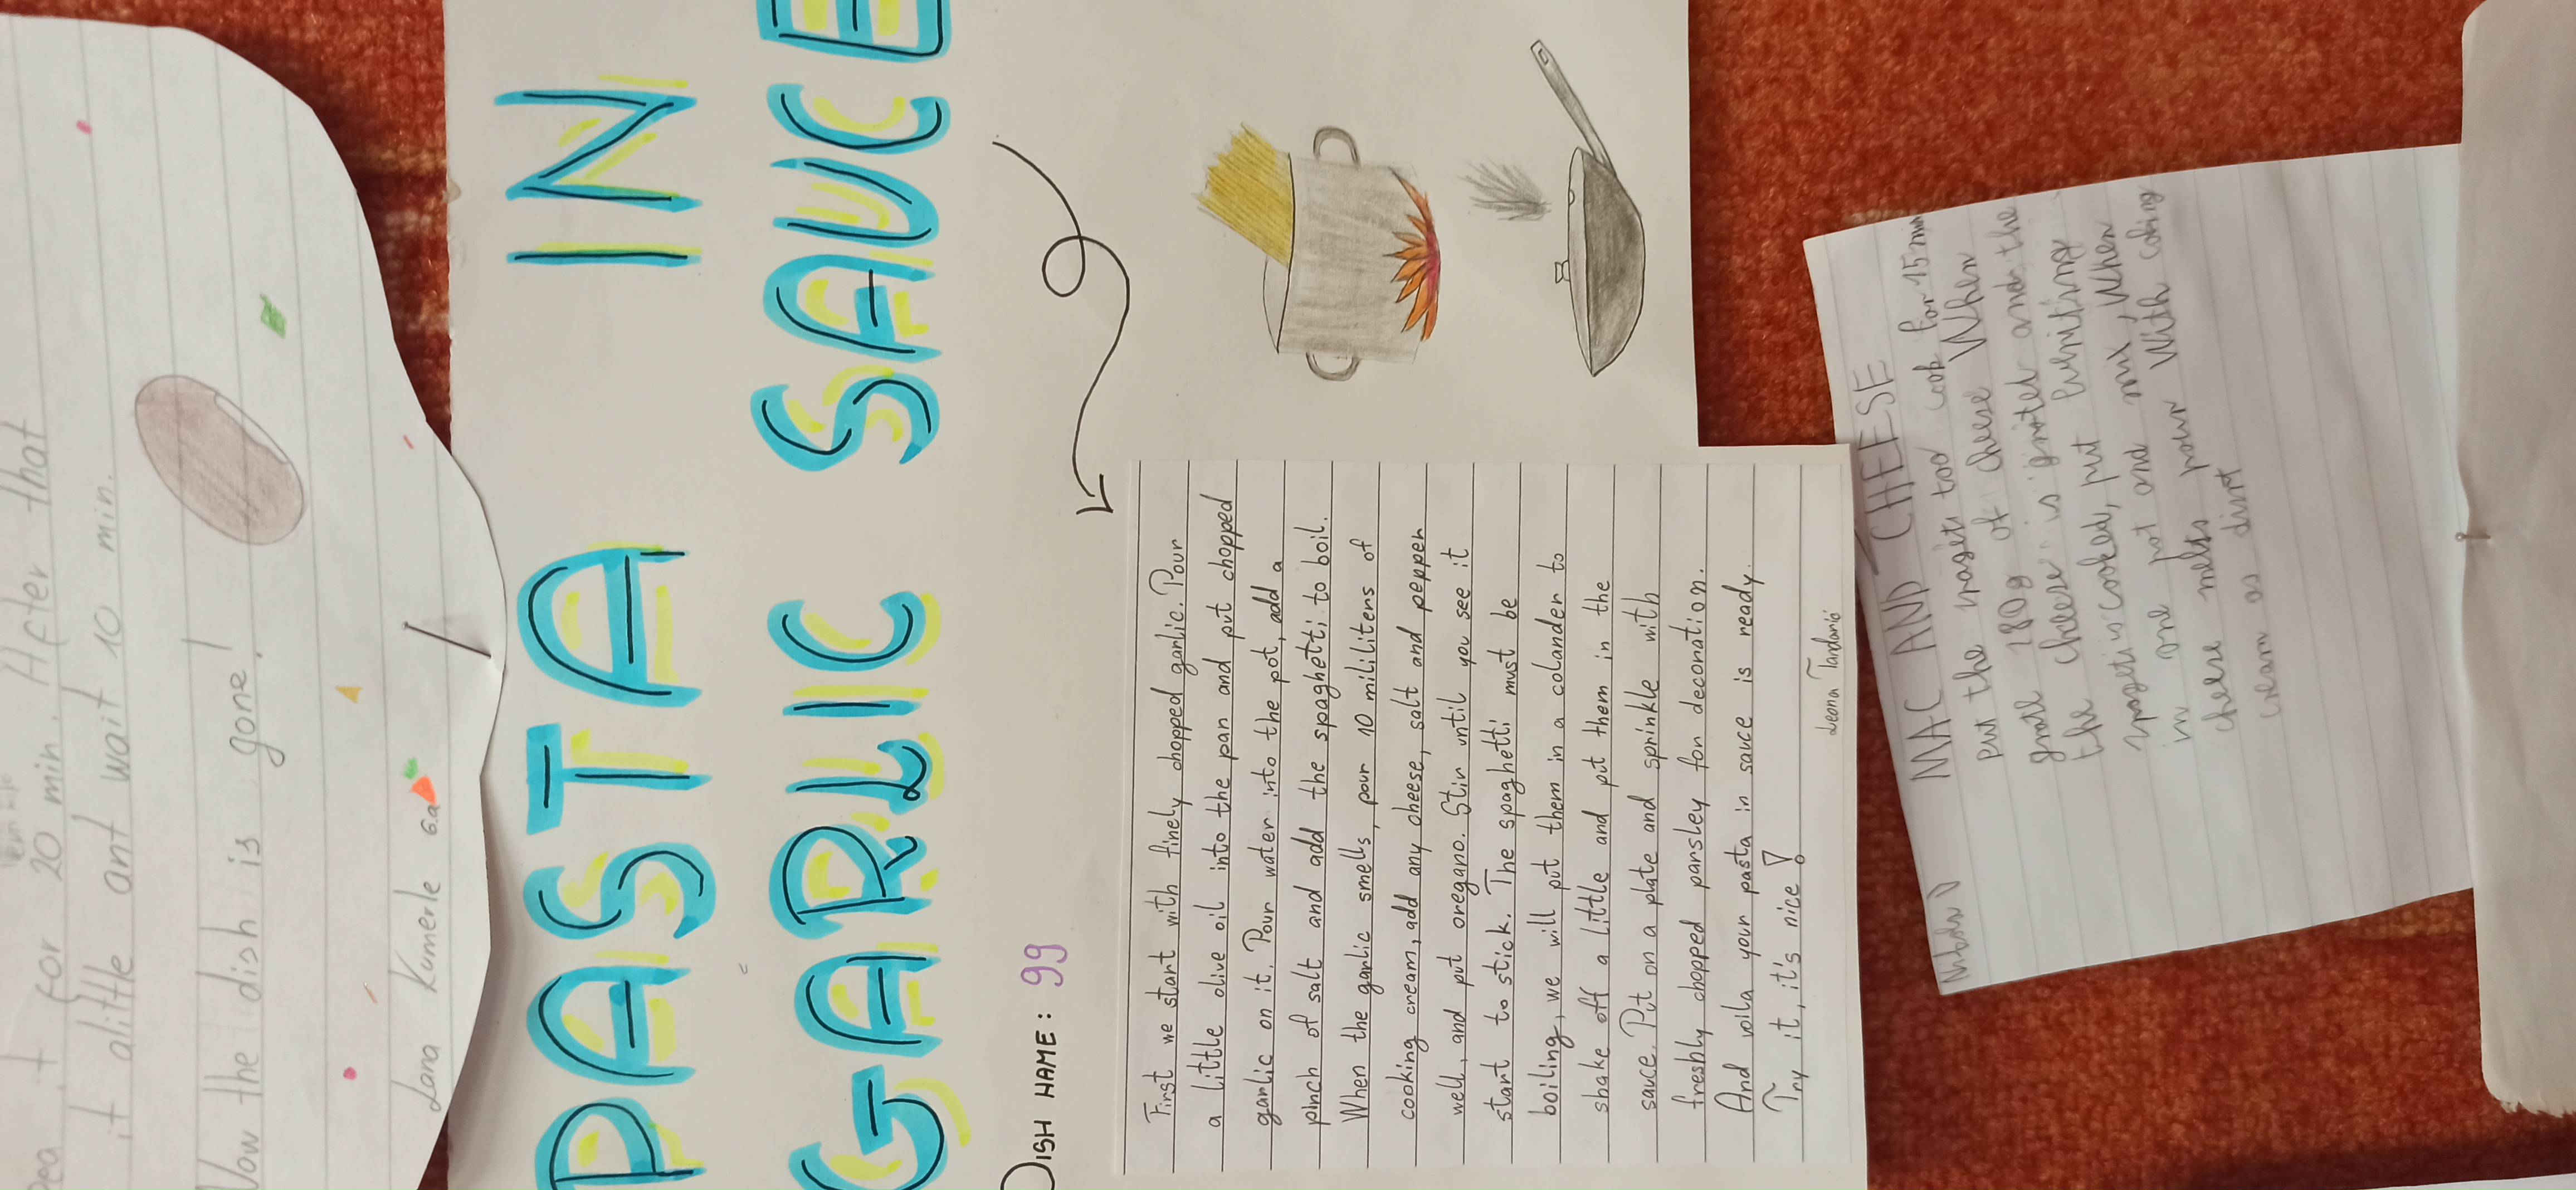 it for 20 min. After that
it alittle ant wait 10 min.
Now the dish is gone!
Lana Kumerle 6.a
PASTA IN
GARLIC SAUCE
DISH HAME: 99
First we start with finely chopped garlic. Pour
a little olive oil into the pan and put chopped
garlic on it. Pour water into the pot, add a
pinch of salt and add the spagheti to boil.
When the garlic smells, pour 10 mililiters of
cooking cream, add any cheese, salt and pepper
well, and put oregano. Stir until you see it
start to stick. The spaghetti must be
boiling, we will put them in a colander to
shake off a little and put them in the
sauce. Put on a plate and sprinkle with
freshly chopped parsley for decoration.
And voila your pasta in sauce is ready.
Try it, it's nice!
Leona Tandarić
MAC AND CHEESE
put the too cook for 15 min
180g of cheese When
the cheese is grated and the
is cooked, put
in one pot and mix, When
cheese melts pour With
cream as